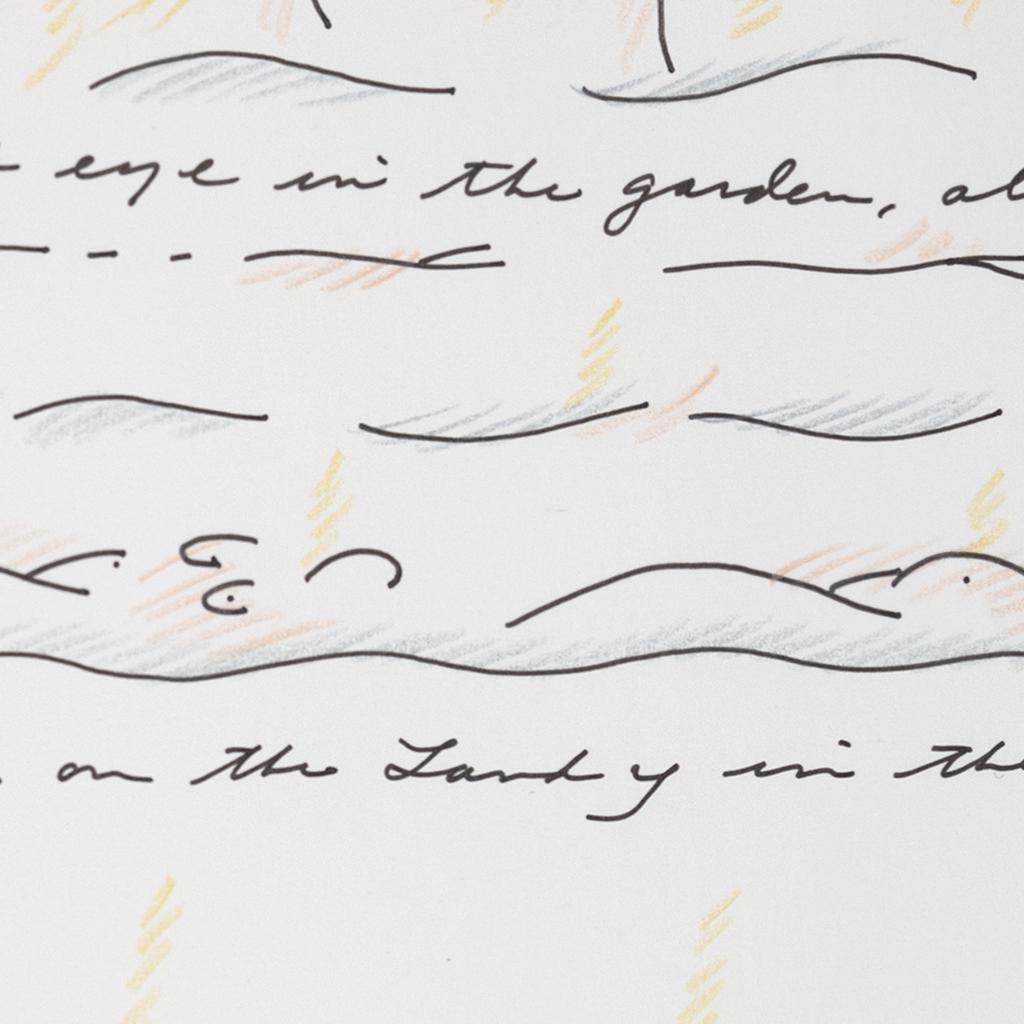 eye in the garden,
on the Landy in the